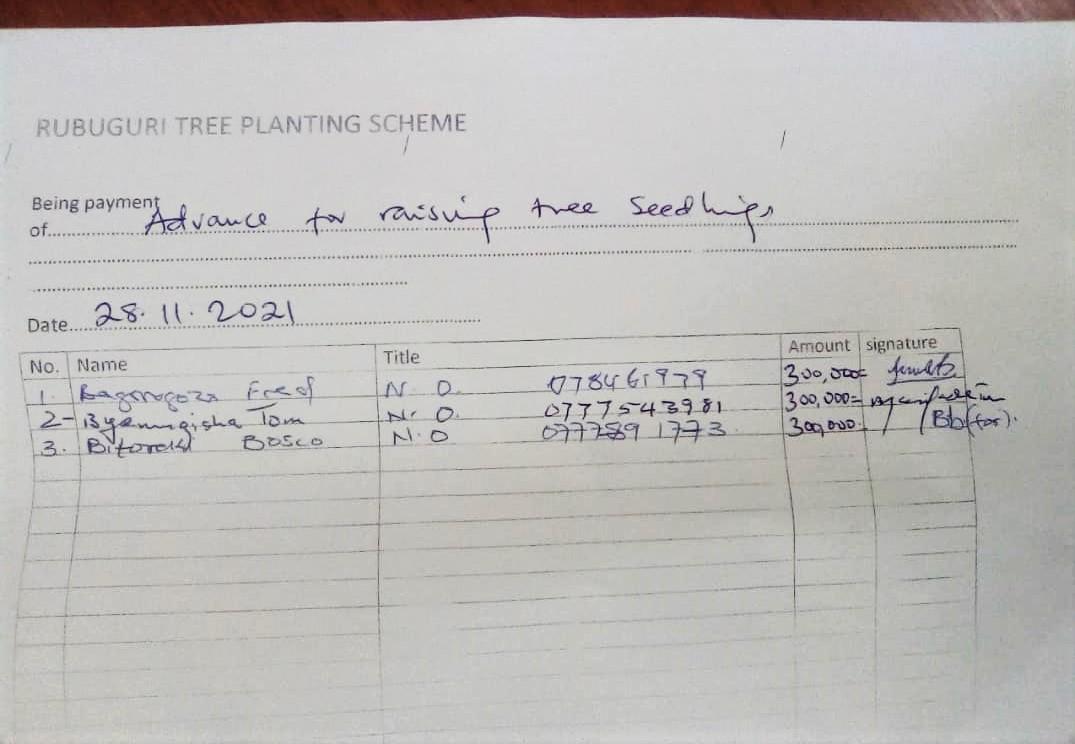 RUBUGURI TREE PLANTING SCHEME
Being payment
of Advance for raising tree Seedlings
Date 28.11.2021
No. Name Title Amount signature
1. Fred N.O. 078461979 300,000=
2- Byamugisha Tom N.O. 07775 43981 300,000=
3. Bosco N.O 077789 1773 300,000 (for).